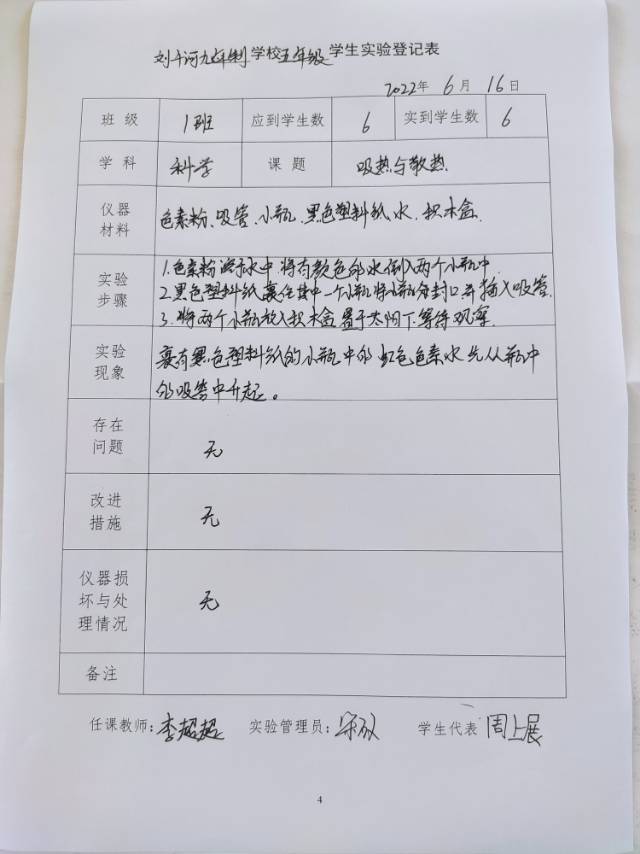 刘千河九年制学校五年级学生实验登记表
2022年 6月 16日
班级 1班 应到学生数 6 实到学生数 6
学科 科学 课题 吸热与散热
仪器材料 色素粉、吸管、小瓶、黑色塑料纸、水、积木盒.
实验步骤 1.色素粉溶于水中,将有颜色的水倒入两个小瓶中.
2.黑色塑料纸裹住其中一个小瓶,将小瓶封口,并插入吸管.
3.将两个小瓶放入积木盒置于太阳下等待观察.
实验现象 裹有黑色塑料纸的小瓶中的红色色素水先从瓶中
的吸管中升起。
存在问题 无
改进措施 无
仪器损坏与处理情况 无
备注
任课教师:李超超 实验管理员: 学生代表 周上展
4